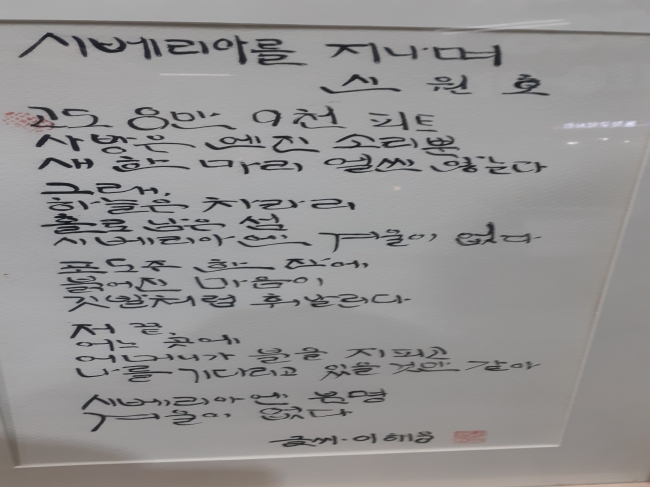 시베리아를 지나며
신 원 호
고도 8만 9천 피트
사방은 엔진 소리뿐
새 한 마리 얼씬 않는다
그래,
하늘은 차라리
홀로 남은 섬
시베리아엔 겨울이 없다
포도주 한 잔에
붉어진 마음이
깃발처럼 휘날린다
저 끝
어느 곳에
어머니가 불을 지피고
나를 기다리고 있을 것만 같아
시베리아엔 분명
겨울이 없다
글씨·이해웅